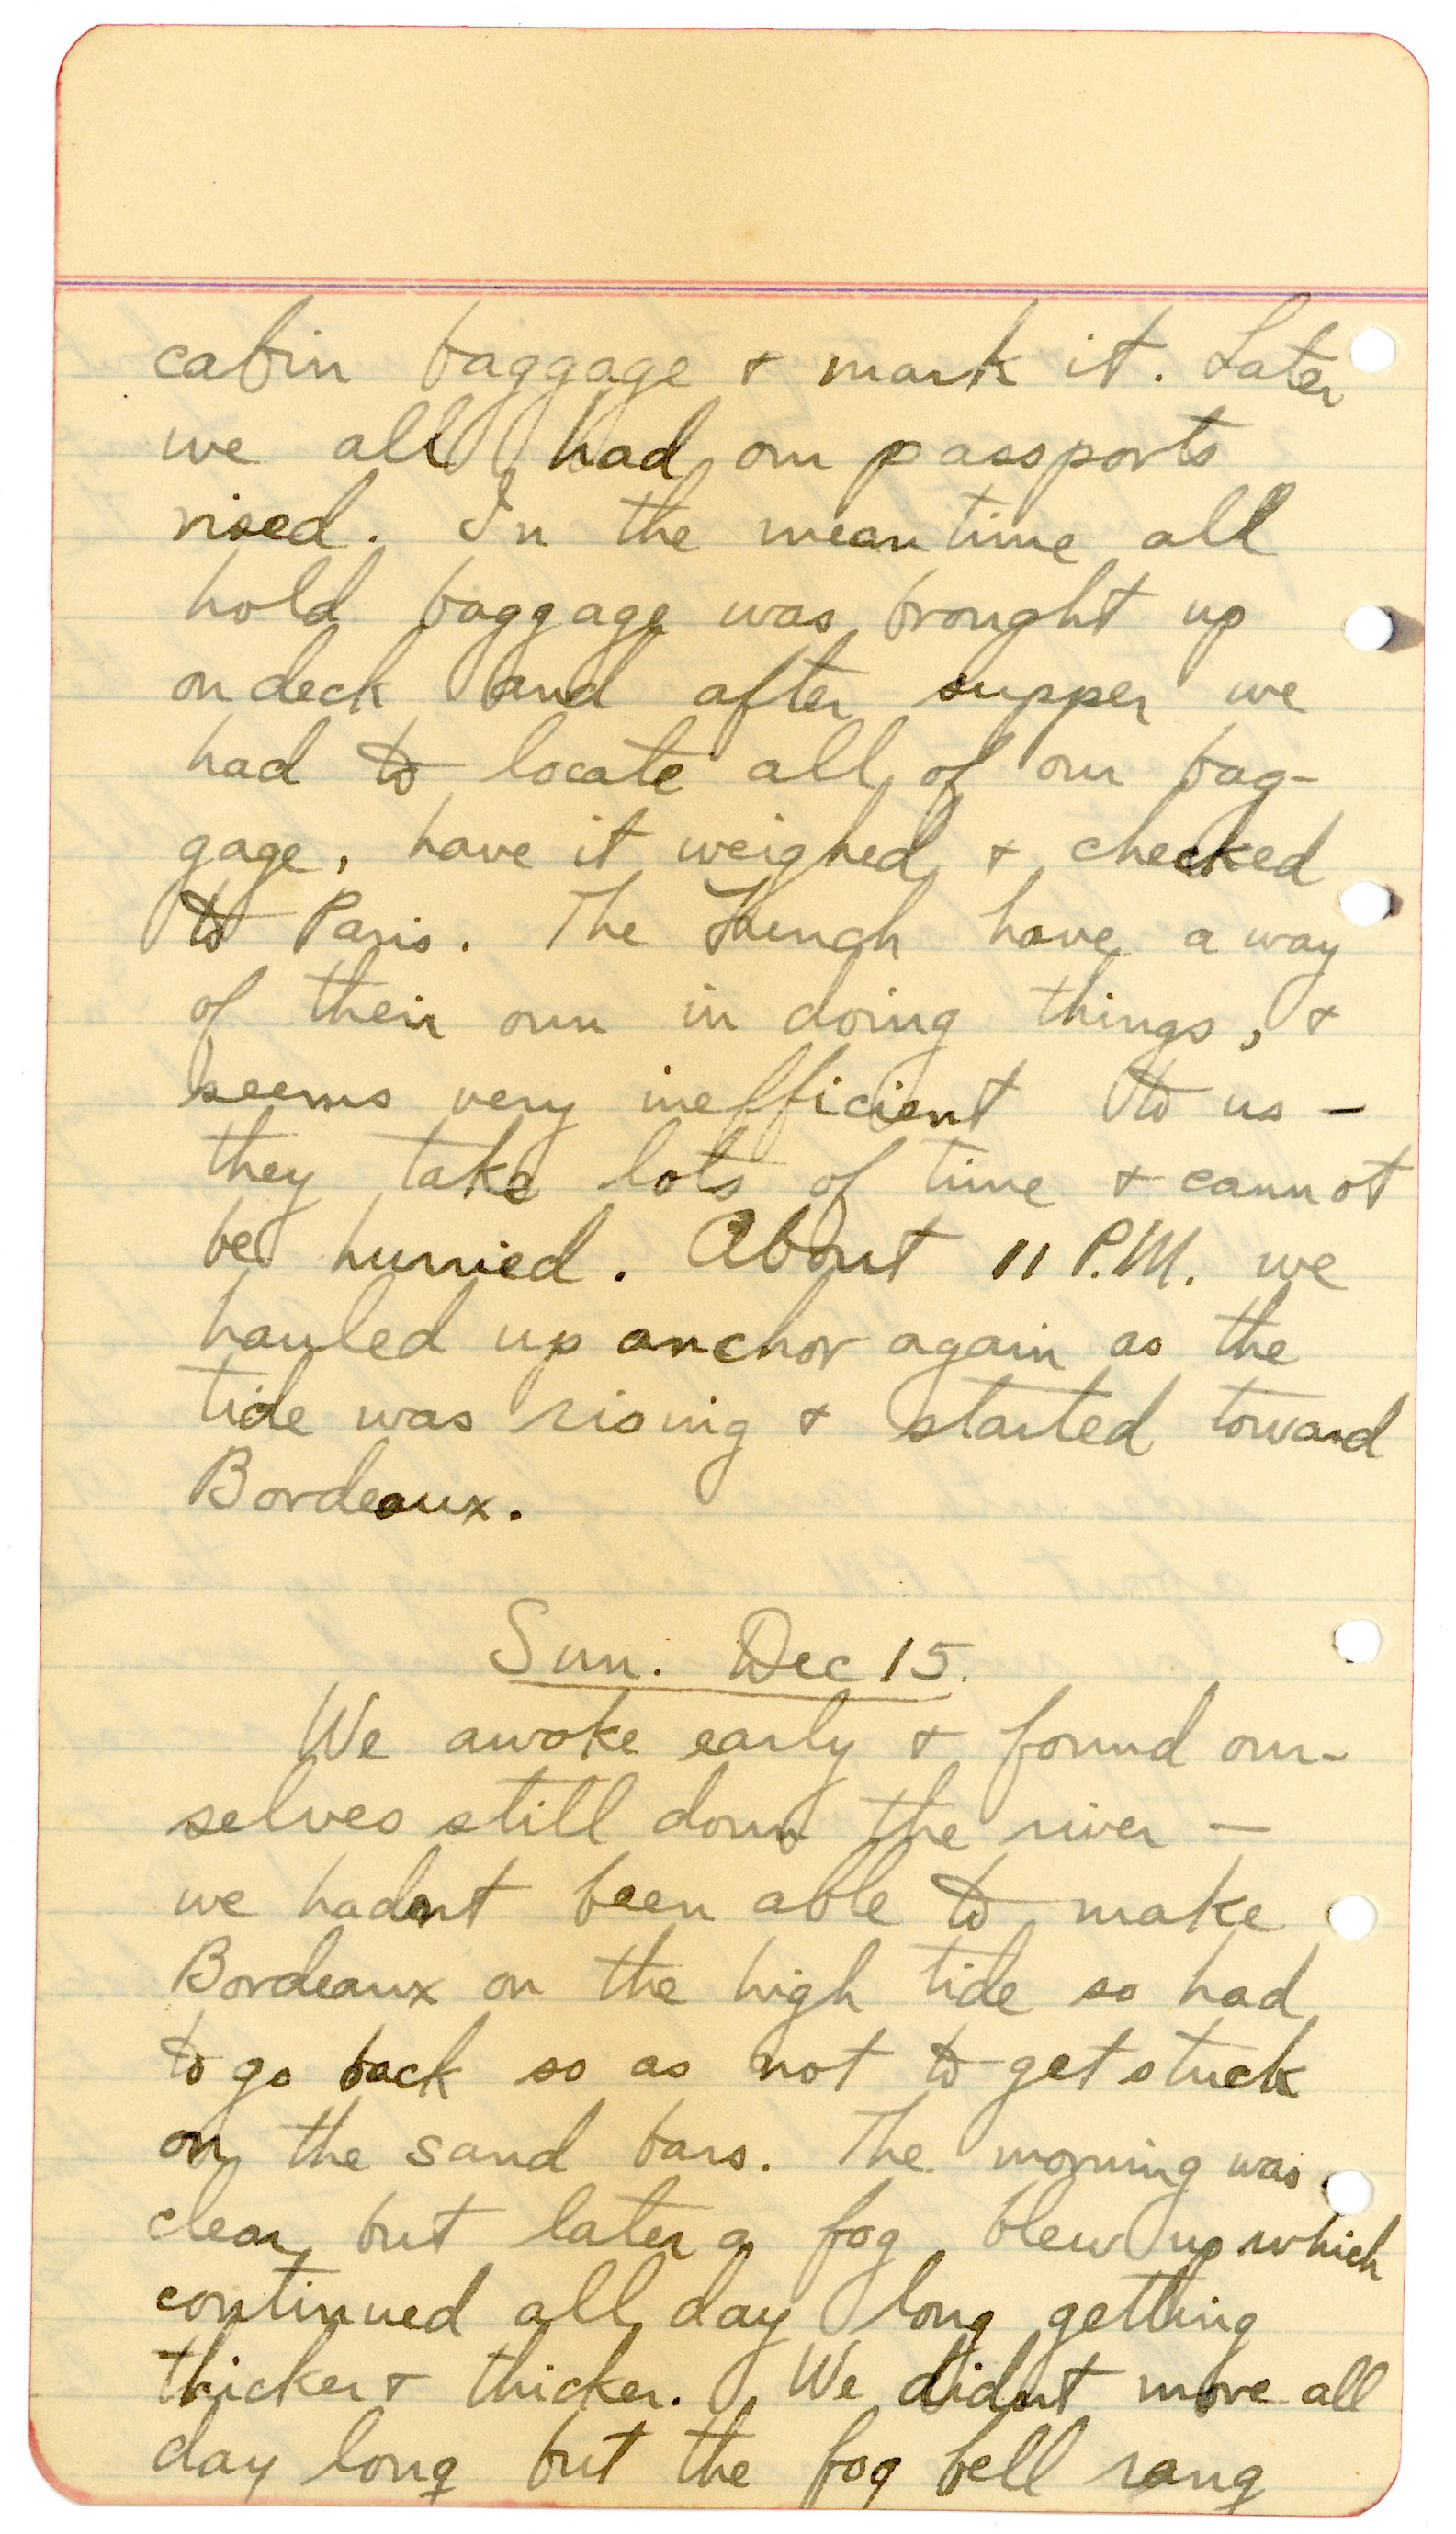 cabin baggage & mark it. Later
we all had our passports
vised. In the meantime all
hold baggage was brought up
on deck and after supper we
had to locate all of our bag-
gage, have it weighed & checked
to Paris. The French have a way
of their own in doing things, &
seems very inefficient to us –
they take lots of time & cannot
be hurried. About 11 P.M. we
hauled up anchor again as the
tide was rising & started toward
Bordeaux.
Sun. Dec 15.
We awoke early & found our-
selves still down the river —
we hadnt been able to make
Bordeaux on the high tide so had
to go back so as not to get stuck
on the sand bars. The morning was
clear but later a fog blew up which
continued all day long getting
thicker & thicker. We didnt move all
day long but the fog bell rang